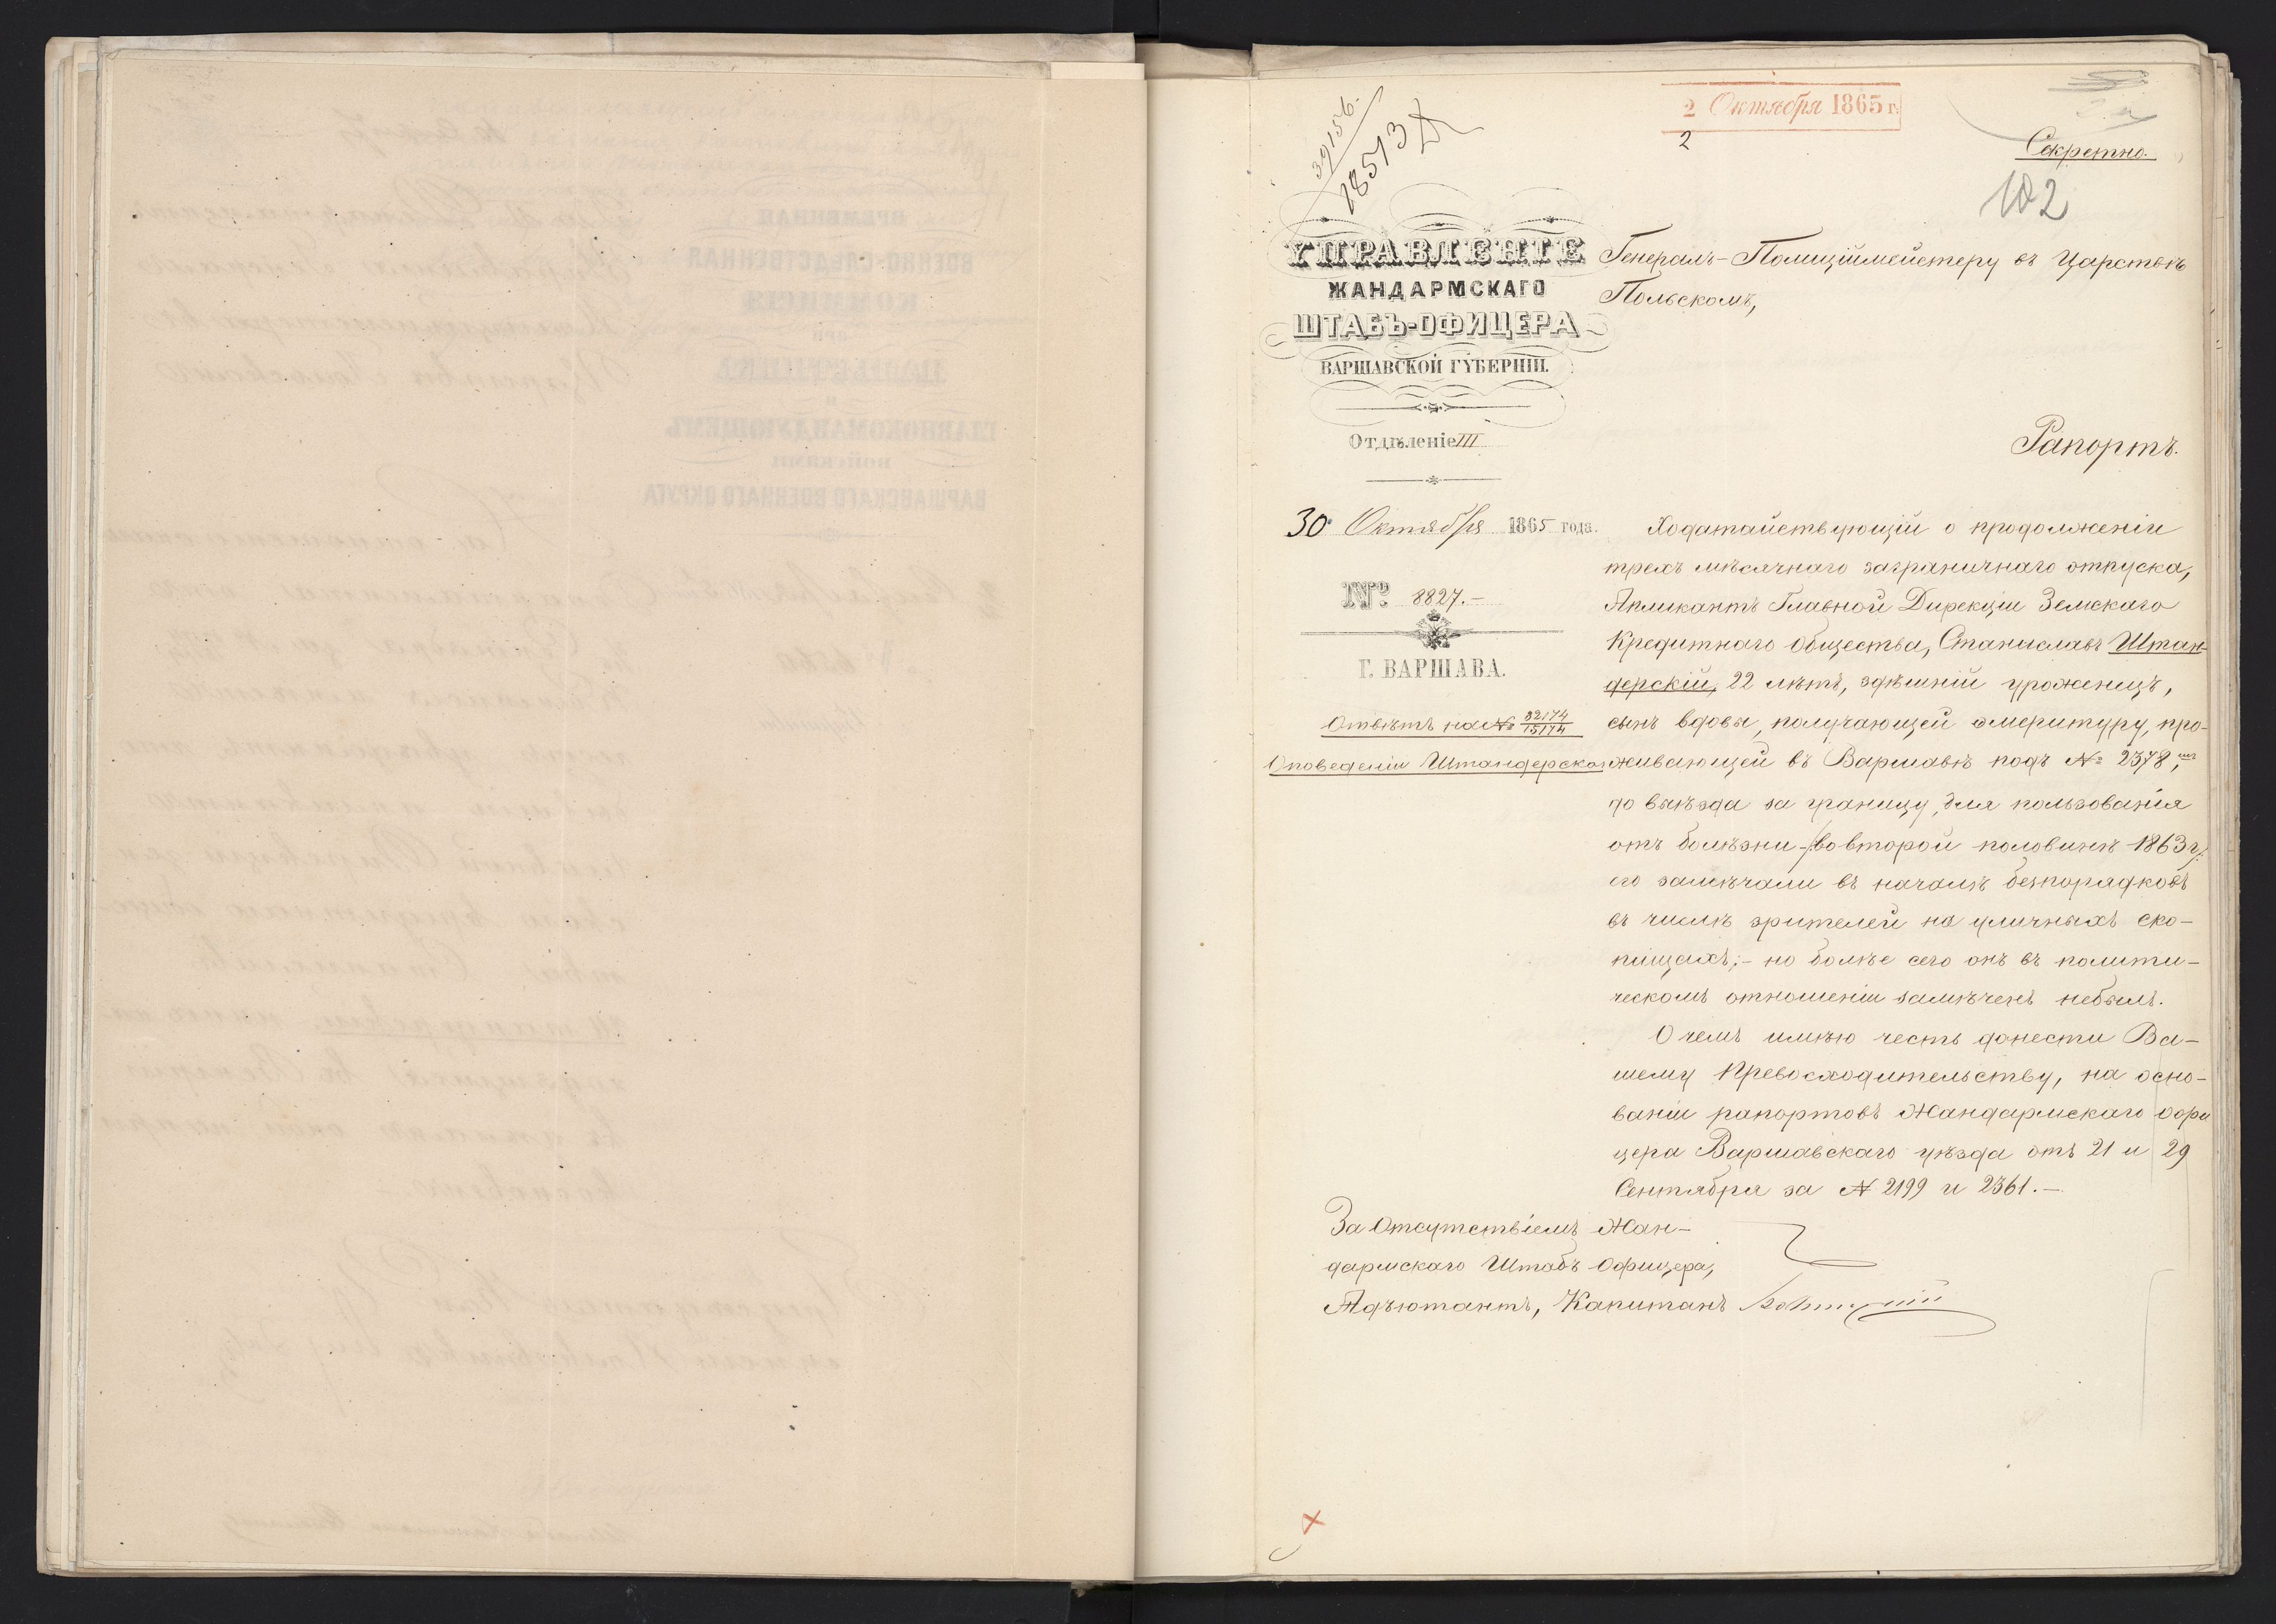 2 Октября 1865 г.
2
39156.
18513
Секретно.
102
УПРАВЛЕНІЕ
ЖАНДАРМСКАГО
ШТАБЪ-ОФИЦЕРА
ВАРШАВСКОЙ ГУБЕРНІИ.
Отдѣленіе III
30 Октября 1865 года.
№ 8827.-
Г. ВАРШАВА.
Отвѣтъ на № 32174/15174
О поведеніи Штандерскаго
Генералъ-Полиціймейстеру въ Царствѣ
Польскомъ,
Рапортъ.
Ходатайствующій о продолженіи
трехъ мѣсячнаго заграничнаго отпуска,
Апликантъ Главной Дирекціи Земскаго
Кредитнаго Общества, Станиславъ Штан-
дерскій, 22 лѣтъ, здѣшній уроженецъ,
сынъ вдовы, получающей эмеритуру, про-
живающей въ Варшавѣ подъ № 2378,
до выѣзда за границу, для пользованія
отъ болѣзни /:во второй половинѣ 1863 г:/
его замѣчали въ началѣ безпорядковъ
въ числѣ зрителей на уличныхъ ско-
пищахъ;- но болѣе сего онъ въ полити-
ческомъ отношеніи замѣченъ небылъ.
О чемъ имѣю честь донести Ва-
шему Превосходительству, на осно-
ваніи рапортовъ Жандармскаго Офи
цера Варшавскаго уѣзда отъ 21 и 29
Сентября за № 2199 и 2361.-
За Отсутствіемъ Жан-
дармскаго Штабъ Офицера,
Адъютантъ, Капитанъ